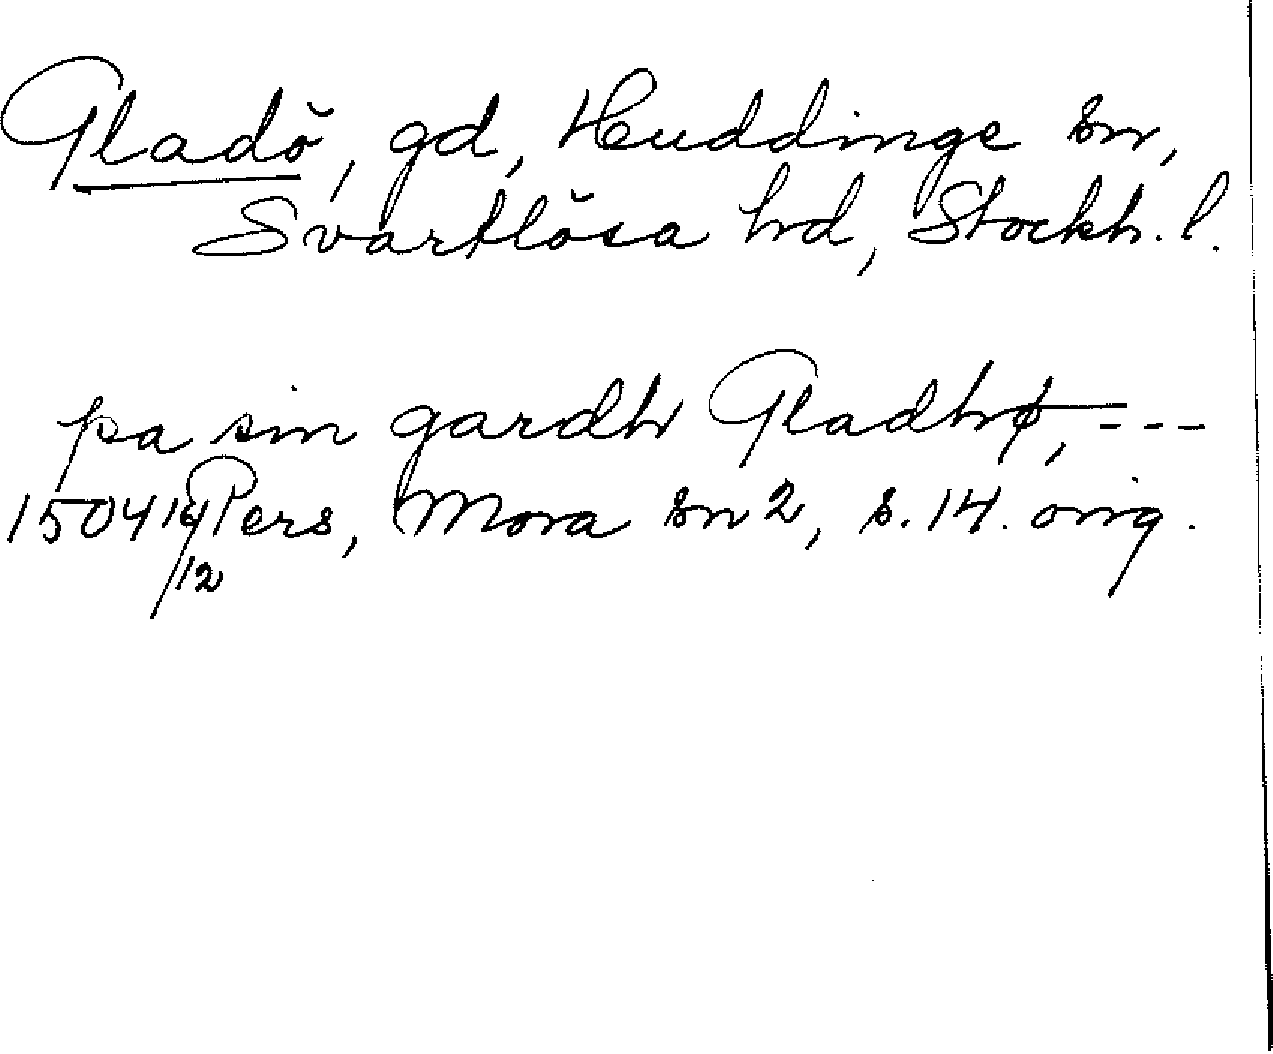 Gladö, gd, Huddinge sn,
Svartlösa hd, Stockh. l.
pa sin gardh Gladhø, ---
1504 14/12 Pers, Mora sn 2, s. 14. orig.